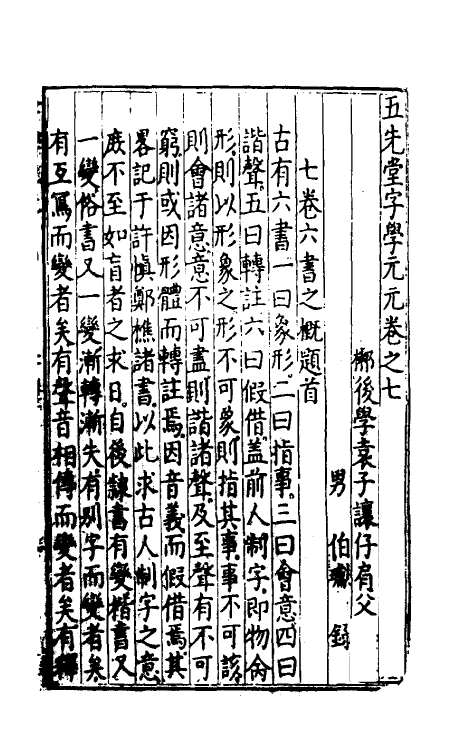 五先堂字學元元卷之七
郴後學袁子讓仔肩父
男　伯　錄
七卷六書之概題首
古有六書一曰象形二曰指事三曰會意四曰
諧聲五曰轉註六曰假借蓋前人制字即物侖
形則以形象之形不可象則指其事事不可該
則會諸意意不可盡則諧諸聲及至聲有不可
窮則或因形體而轉註焉因音義而假借焉其
畧記于許愼鄭樵諸書以此求古人制字之意
庶不至如盲者之求日自後隸書有變楷書又
一變俗書又一變漸轉漸失有別字而變者矣
有互寫而變者矣有聲音相傳而變者矣有